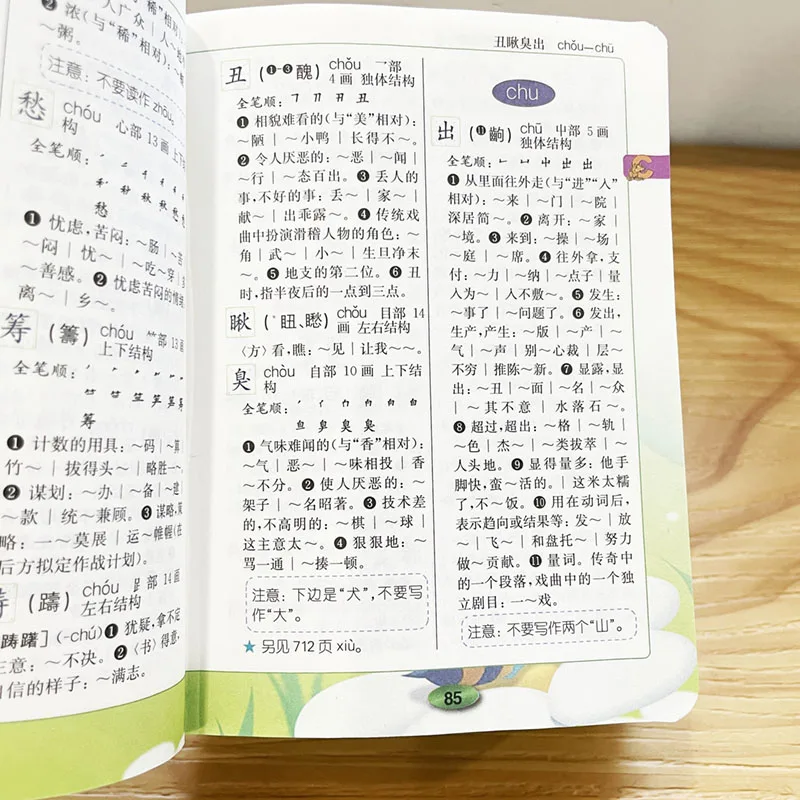 ❷ 浓(与“稀”相对):
～粥。
注意：不要读作 zhóu。
愁 chóu 心部 13 画 上下
构
全笔顺：
愁
❶ 忧虑，苦闷：～肠｜～苦
～闷｜忧～｜～吃～穿｜
～善感。❷ 忧虑苦闷的情绪
离～｜乡～。
筹 (籌) chóu 竹部 13 画
上下结构
全笔顺：
筹
❶ 计数的用具：～码｜～算
竹～｜拔得头～｜略胜一～
❷ 谋划：～办｜～备｜～建
～款｜统～兼顾。❸ 谋略，
略：一～莫展｜运～帷幄(在
后方拟定作战计划)。
(躊) chóu 𧾷部 14 画
左右结构
踌躇］(-chú) ❶ 犹疑，拿不定
主意：～不决。❷〈书〉得意，
自信的样子：～满志。
丑瞅臭出 chǒu—chū
丑 (❶-❸醜) chǒu 一部
4 画 独体结构
全笔顺： ㇕ 刀 丑 丑
❶ 相貌难看的(与“美”相对)：
～陋｜～小鸭｜长得不～。
❷ 令人厌恶的：～恶｜～闻
｜～行｜～态百出。❸ 丢人的
事，不好的事：丢～｜家～｜
献～｜出乖露～。❹ 传统戏
曲中扮演滑稽人物的角色：～
角｜武～｜小～｜生旦净末
～。❺ 地支的第二位。❻ 丑
时，指半夜后的一点到三点。
瞅 (*䀔、矁) chǒu 目部 14
画 左右结构
〈方〉看，瞧：～见｜让我～～。
臭 chòu 自部 10 画 上下结
构
全笔顺： ′ 亻 冂 甪 自 自
臭 臭 臭 臭
❶ 气味难闻的(与“香”相对)：
～气｜恶～｜～味相投｜香
～不分。❷ 使人厌恶的：～
架子｜～名昭著。❸ 技术差
的，不高明的：～棋｜～球｜
这主意太～。❹ 狠狠地：～
骂一通｜～揍一顿。
注意：下边是“犬”，不要写
作“大”。
★ 另见 712 页 xiù。
chu
出 (⓫齣) chū 屮部 5 画
独体结构
全笔顺： 𠃊 凵 屮 出 出
❶ 从里面往外走(与“进”“入”
相对)：～来｜～门｜～院｜
深居简～。❷ 离开：～家｜
～境。❸ 来到：～操｜～场｜
～庭｜～席。❹ 往外拿，支
付：～力｜～纳｜～点子｜量
入为～｜入不敷～。❺ 发生：
～事了｜～问题了。❻ 发出，
生产，产生：～版｜～产｜～
气｜～声｜别～心裁｜层～
不穷｜推陈～新。❼ 显露，显
出：～丑｜～面｜～名｜～众
｜～其不意｜水落石～。
❽ 超过，超出：～格｜～轨｜
～色｜杰～｜～类拔萃｜～
人头地。❾ 显得量多：他手
脚快，蛮～活的。｜这米太糯
了，不～饭。❿ 用在动词后，
表示趋向或结果等：发～｜放
～｜飞～｜和盘托～｜努力
做～贡献。⓫ 量词。传奇中
的一个段落，戏曲中的一个独
立剧目：一～戏。
注意：不要写作两个“山”。
C
85